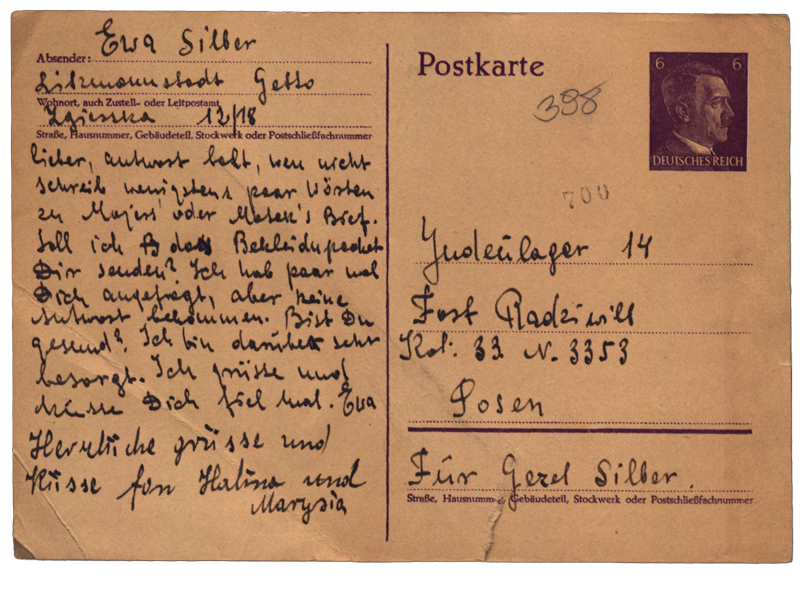 Ewa Silber
Absender:
Litzmannstadt Getto
Wohnort, auch Zustell- oder Leitpostamt
Zgierska 12/18
Straße, Hausnummer, Gebäudeteil, Stockwerk oder Postschließfachnummer
lieber, antwort balt, wen nicht
schreib wenigstens paar Wörten
zu Majers oder Matek's Brief.
Soll ich das Bekleidupacket
Dir senden? Ich hab paar mal
Dich angefragt, aber keine
Antwort bekommen. Bist Du
gesund? Ich bin darüber sehr
besorgt. Ich grüsse und
küsse Dich fiel mal. Ewa
Herzliche grüsse und
Küsse fon Halina und
Marysia
Postkarte
398
6 6
DEUTSCHES REICH
700
Judenlager 14
Fort Radziwill
Kol: 33 N. 3353
Posen
Für Gezel Silber.
Straße, Hausnummer, Gebäudeteil, Stockwerk oder Postschließfachnummer